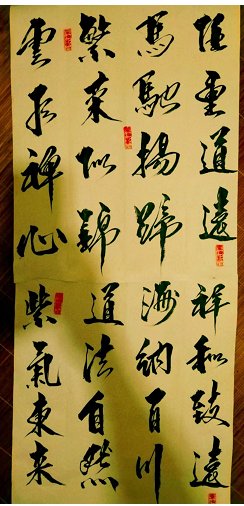 任重道遠
馬馳揚蹄
繁荣似錦
雲水禅心
祥和致遠
海納百川
道法自然
紫氣東来